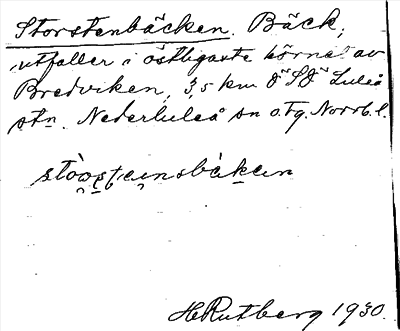 Storstenbäcken. Bäck,
utfaller i östligaste hörnet av
Bredviken, 3,5 km OSO Luleå
stn. Nederluleå sn o. tg. Norrb. l.
HRutberg 1930.